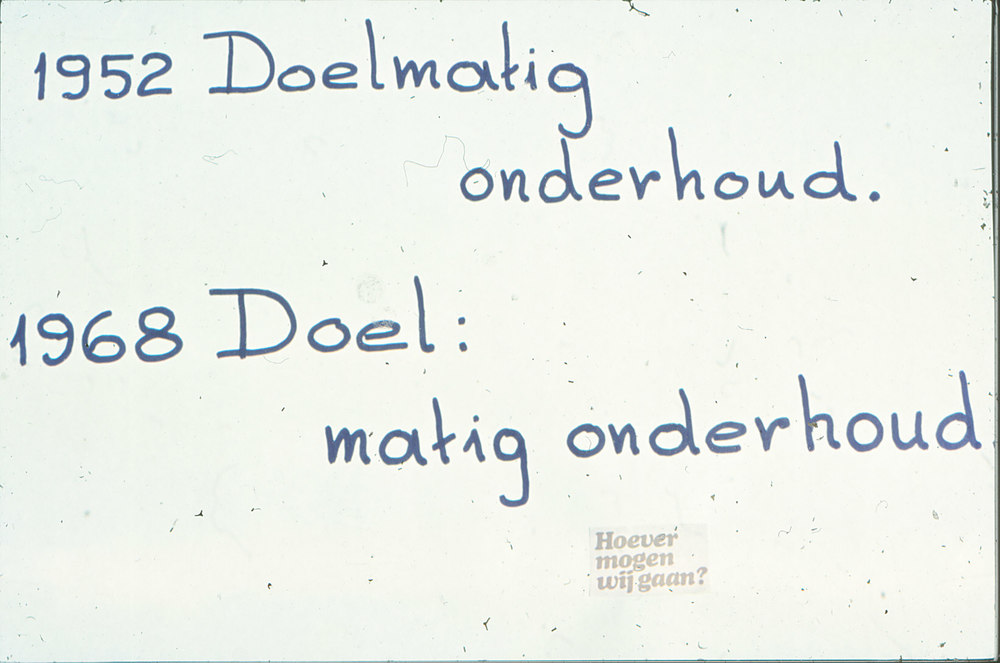 1952 Doelmatig
onderhoud.
1968 Doel:
matig onderhoud
Hoever
mogen
wij gaan?